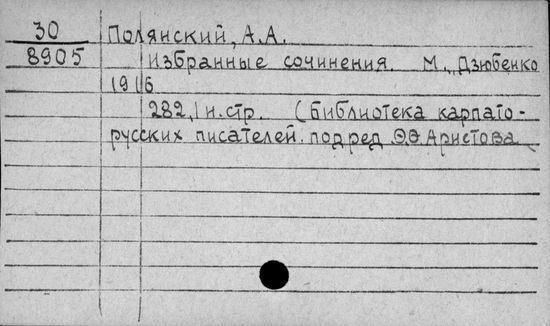 30 Полянский, А.А.
8905 Избранные сочинения. М., Дзюбенко
1916
282, 1 н.стр. (Библиотека карпато-
русских писателей. под ред Ѳ.Ѳ Аристова